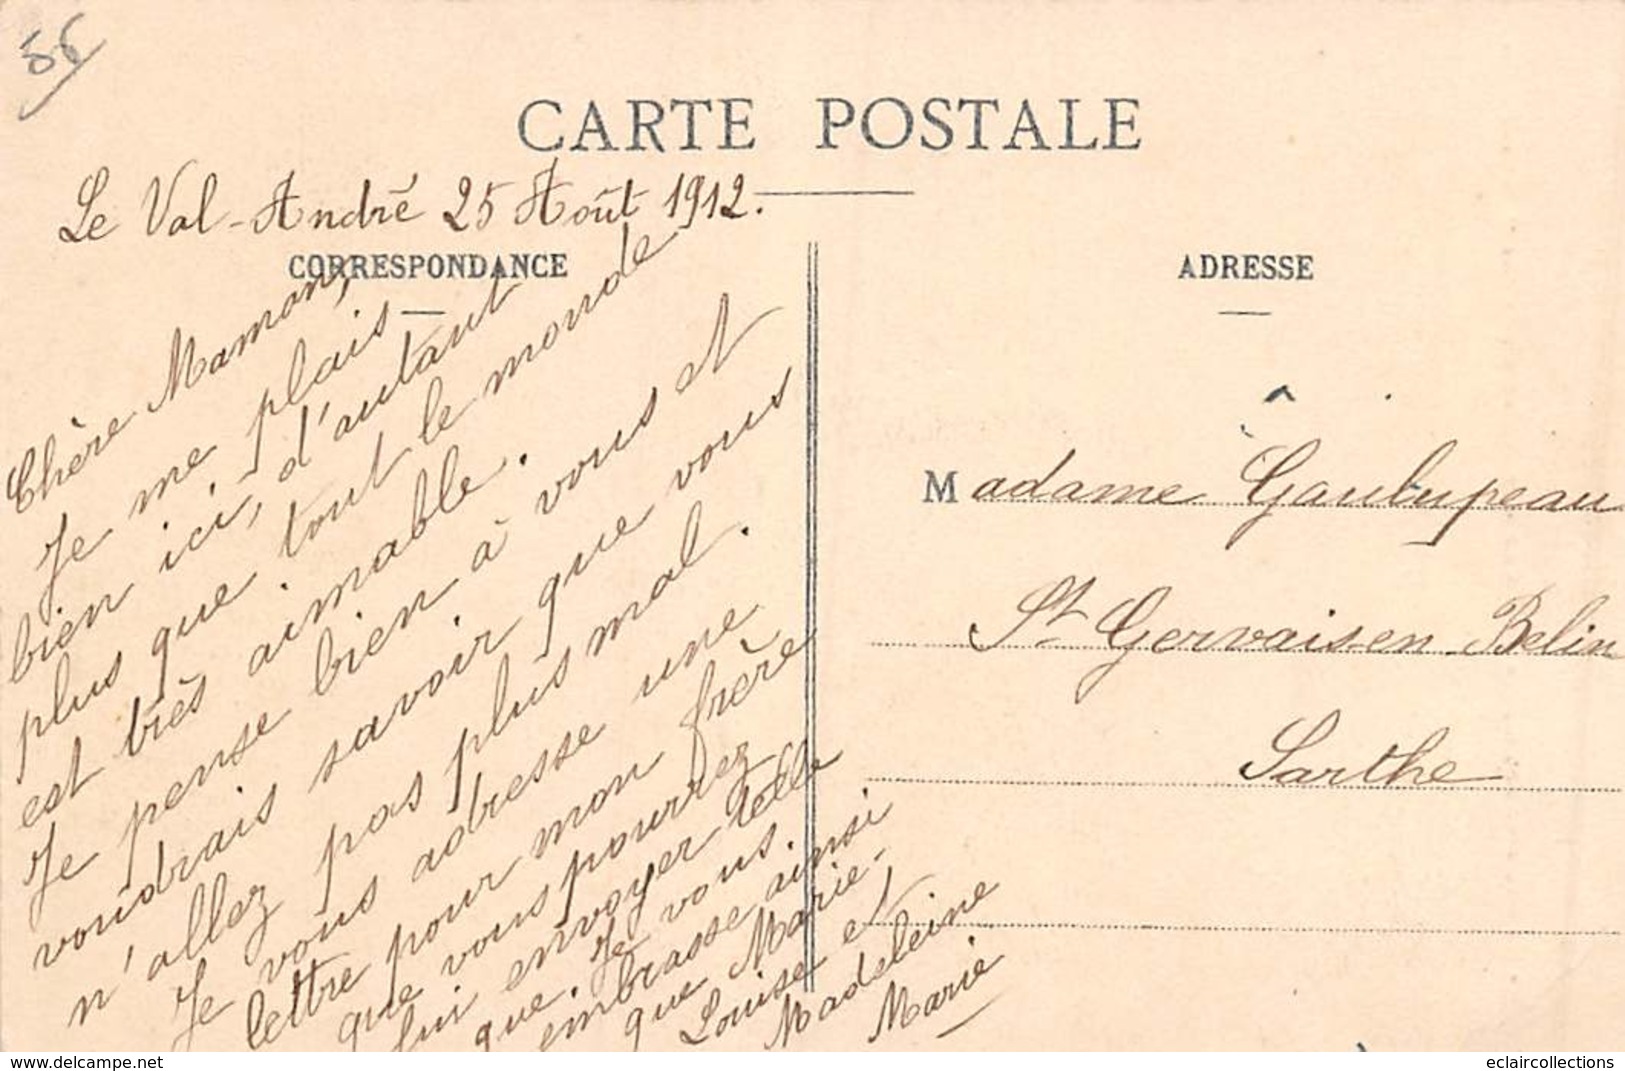 56
CARTE POSTALE
Le Val-André 25 Août 1912.
CORRESPONDANCE
Chère Maman,
Je me plais
bien ici, d'autant
plus que tout le monde
est très aimable.
Je pense bien à vous et
voudrais savoir que vous
n'allez pas plus mal.
Je vous adresse une
lettre pour mon frère
que vous pourrez
lui envoyer telle
que. Je vous.
embrasse ainsi
que Marie-
Louise et
Madeleine
Marie
ADRESSE
Madame Gaulupeau
St Gervais-en-Belin
Sarthe
www.delcampe.net
eclaircollections